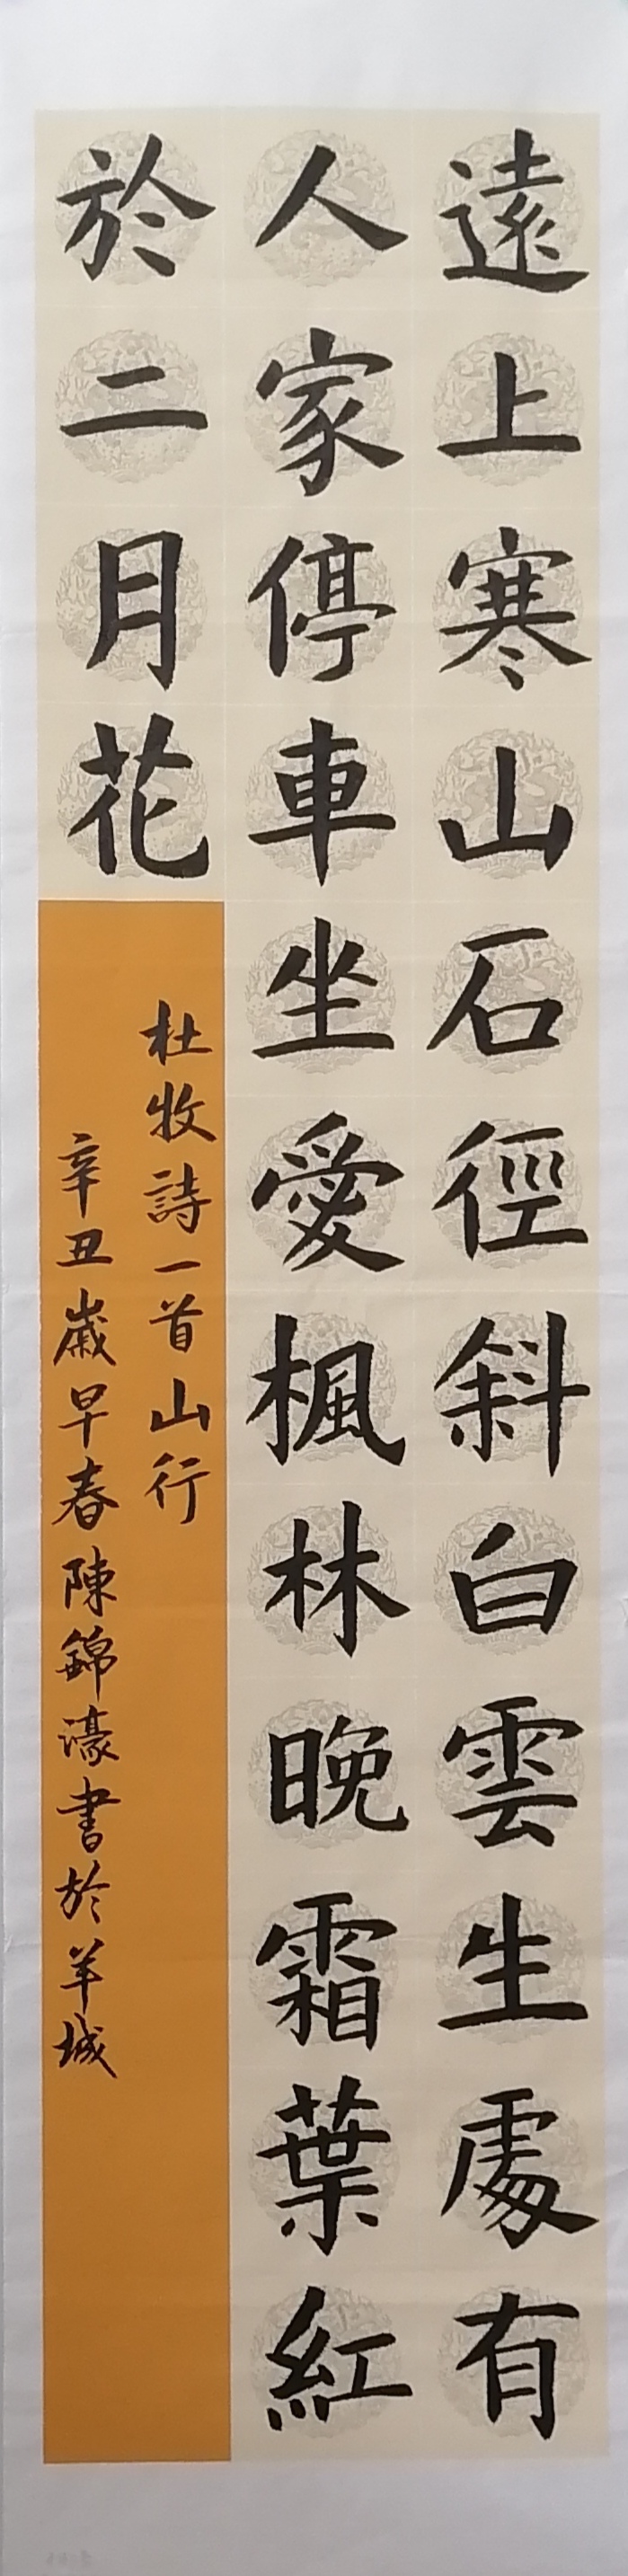 遠上寒山石徑斜白雲生處有
人家停車坐愛楓林晚霜葉紅
於二月花
杜牧詩一首山行
辛丑歲早春陳錦濠書於羊城